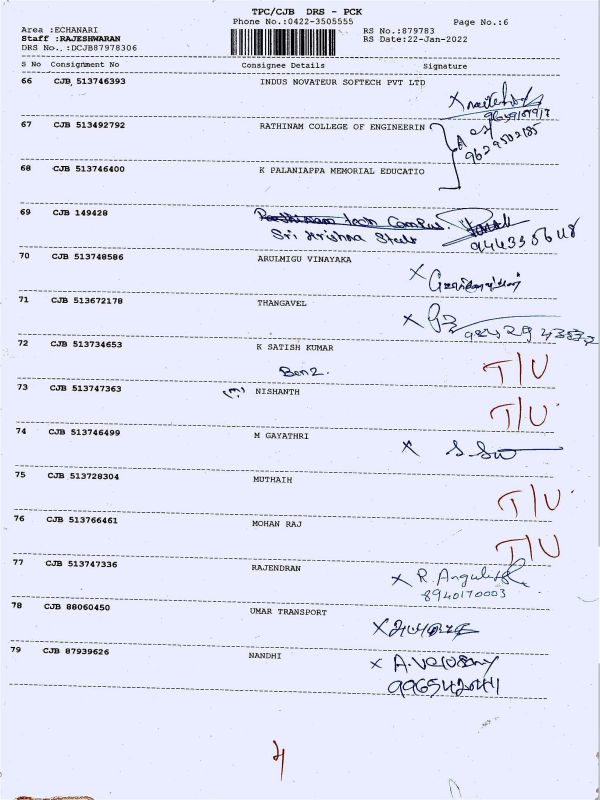 TPC/CJB DRS - PCK
Phone No.:0422-3505555
Page No.:6
Area :ECHANARI
Staff :RAJESHWARAN
DRS No.:DCJB87978306
RS No.:879783
RS Date:22-Jan-2022
S No Consignment No Consignee Details Signature
66 CJB 513746393 INDUS NOVATEUR SOFTECH PVT LTD
67 CJB 513492792 RATHINAM COLLEGE OF ENGINEERIN
9629502185
68 CJB 513746400 K PALANIAPPA MEMORIAL EDUCATIO
69 CJB 149428 Tech Campus.
Sri Krishna Steels
70 CJB 513748586 ARULMIGU VINAYAKA
X
71 CJB 513672178 THANGAVEL
X
72 CJB 513734653 K SATISH KUMAR T/U
73 CJB 513747363 NISHANTH T/U
74 CJB 513746499 M GAYATHRI X
75 CJB 513728304 MUTHAIH T/U
76 CJB 513766461 MOHAN RAJ T/U
77 CJB 513747336 RAJENDRAN X R.
8940170003
78 CJB 88060450 UMAR TRANSPORT
X
79 CJB 87939626 NANDHI X